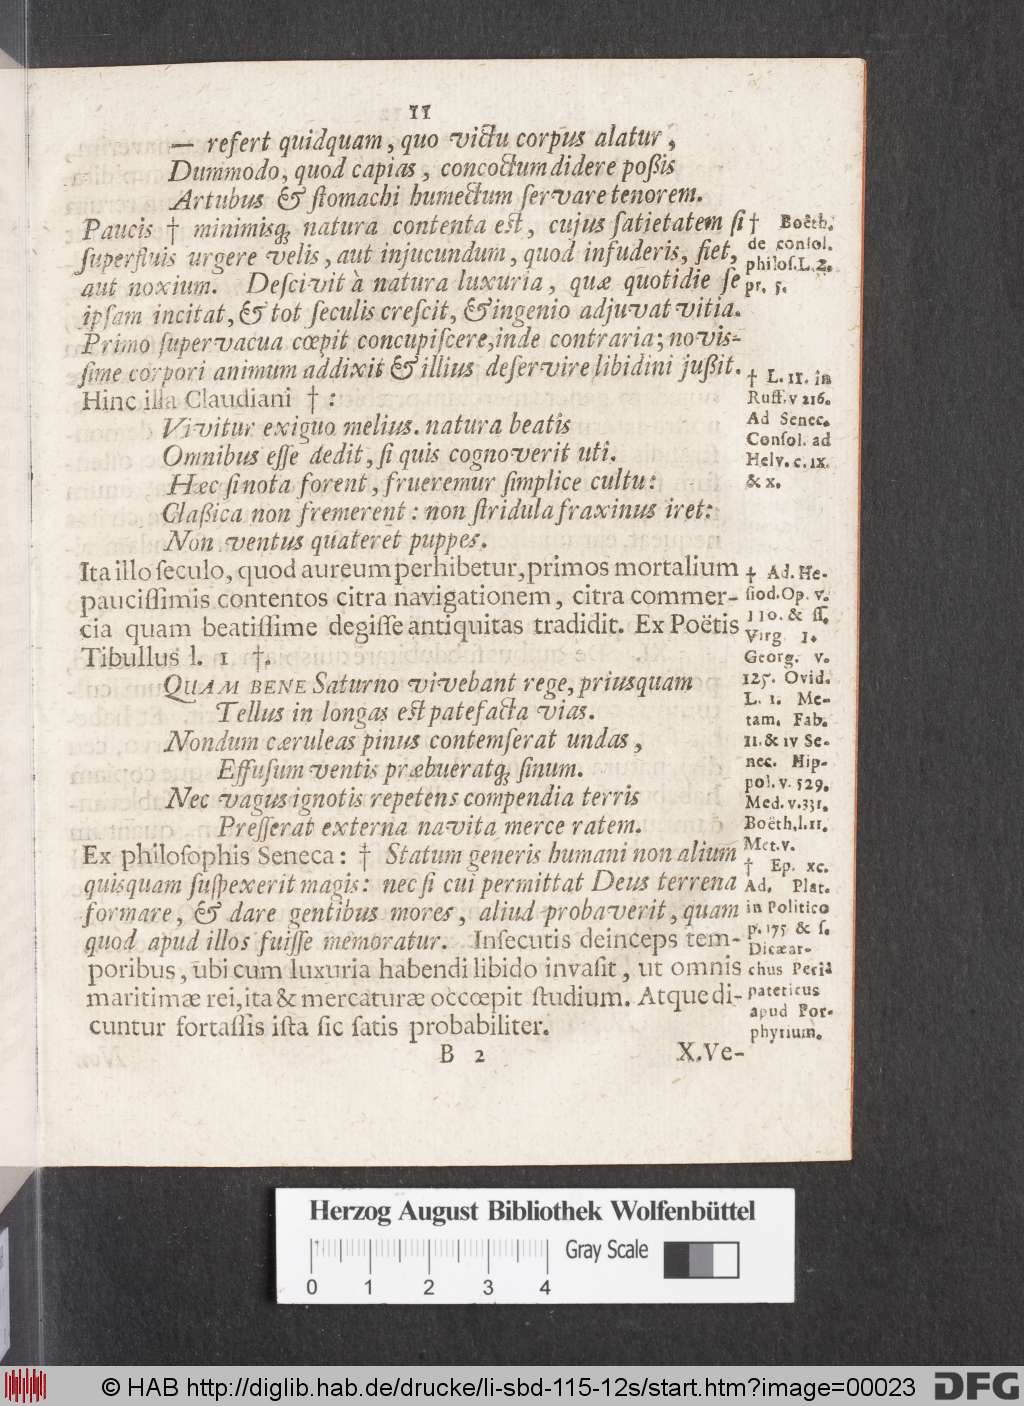 11
— refert quidquam, quo victu corpus alatur,
Dummodo, quod capias, concoctum didere poßis
Artubus & ſtomachi humectum ſervare tenorem.
Paucis † minimisq; natura contenta eſt, cujus ſatietatem ſi
ſuperfluis urgere velis, aut injucundum, quod infuderis, fiet,
aut noxium. Deſcivit à natura luxuria, quæ quotidie ſe
ipſam incitat, & tot ſeculis creſcit, & ingenio adjuvat vitia.
Primo ſupervacua cœpit concupiſcere, inde contraria; noviſ-
ſime corpori animum addixit & illius deſervire libidini jußit.
Hinc illa Claudiani † :
Vivitur exiguo melius. natura beatis
Omnibus eſſe dedit, ſi quis cognoverit uti.
Hæc ſi nota forent, frueremur ſimplice cultu:
Claßica non fremerent: non ſtridula fraxinus iret:
Non ventus quateret puppes.
Ita illo ſeculo, quod aureum perhibetur, primos mortalium
pauciſſimis contentos citra navigationem, citra commer-
cia quam beatiſſime degiſſe antiquitas tradidit. Ex Poëtis
Tibullus l. 1 †.
QUAM BENE Saturno vivebant rege, priusquam
Tellus in longas eſt patefacta vias.
Nondum cæruleas pinus contemſerat undas,
Effuſum ventis præbueratq; ſinum.
Nec vagus ignotis repetens compendia terris
Preſſerat externa navita merce ratem.
Ex philoſophis Seneca: † Statum generis humani non alium
quisquam ſuſpexerit magis: nec ſi cui permittat Deus terrena
formare, & dare gentibus mores, aliud probaverit, quam
quod apud illos fuiſſe memoratur. Inſecutis deinceps tem-
poribus, ubi cum luxuria habendi libido invaſit, ut omnis
maritimæ rei, ita & mercaturæ occœpit ſtudium. Atque di-
cuntur fortaſſis iſta ſic ſatis probabiliter.
B 2
X. Ve-
† Boëth.
de conſol.
philoſ. L. 2.
pr. 5.
† L. II. in
Ruff. v 216.
Ad Senec.
Conſol. ad
Helv. c. IX.
& X.
† Ad. He-
ſiod. Op. v.
110. & ſſ.
Virg I.
Georg. v.
125. Ovid.
L. I. Me-
tam. Fab.
II. & IV Se-
nec. Hip-
pol. v. 529.
Med. v. 331.
Boëth. l. II.
Met. v.
† Ep. XC.
Ad. Plat.
in Politico
p. 175 & ſ.
Dicæar-
chus Peria
pateticus
apud Por-
phyrium.
Herzog August Bibliothek Wolfenbüttel
Gray Scale
0 1 2 3 4
© HAB http://diglib.hab.de/drucke/li-sbd-115-12s/start.htm?image=00023
DFG